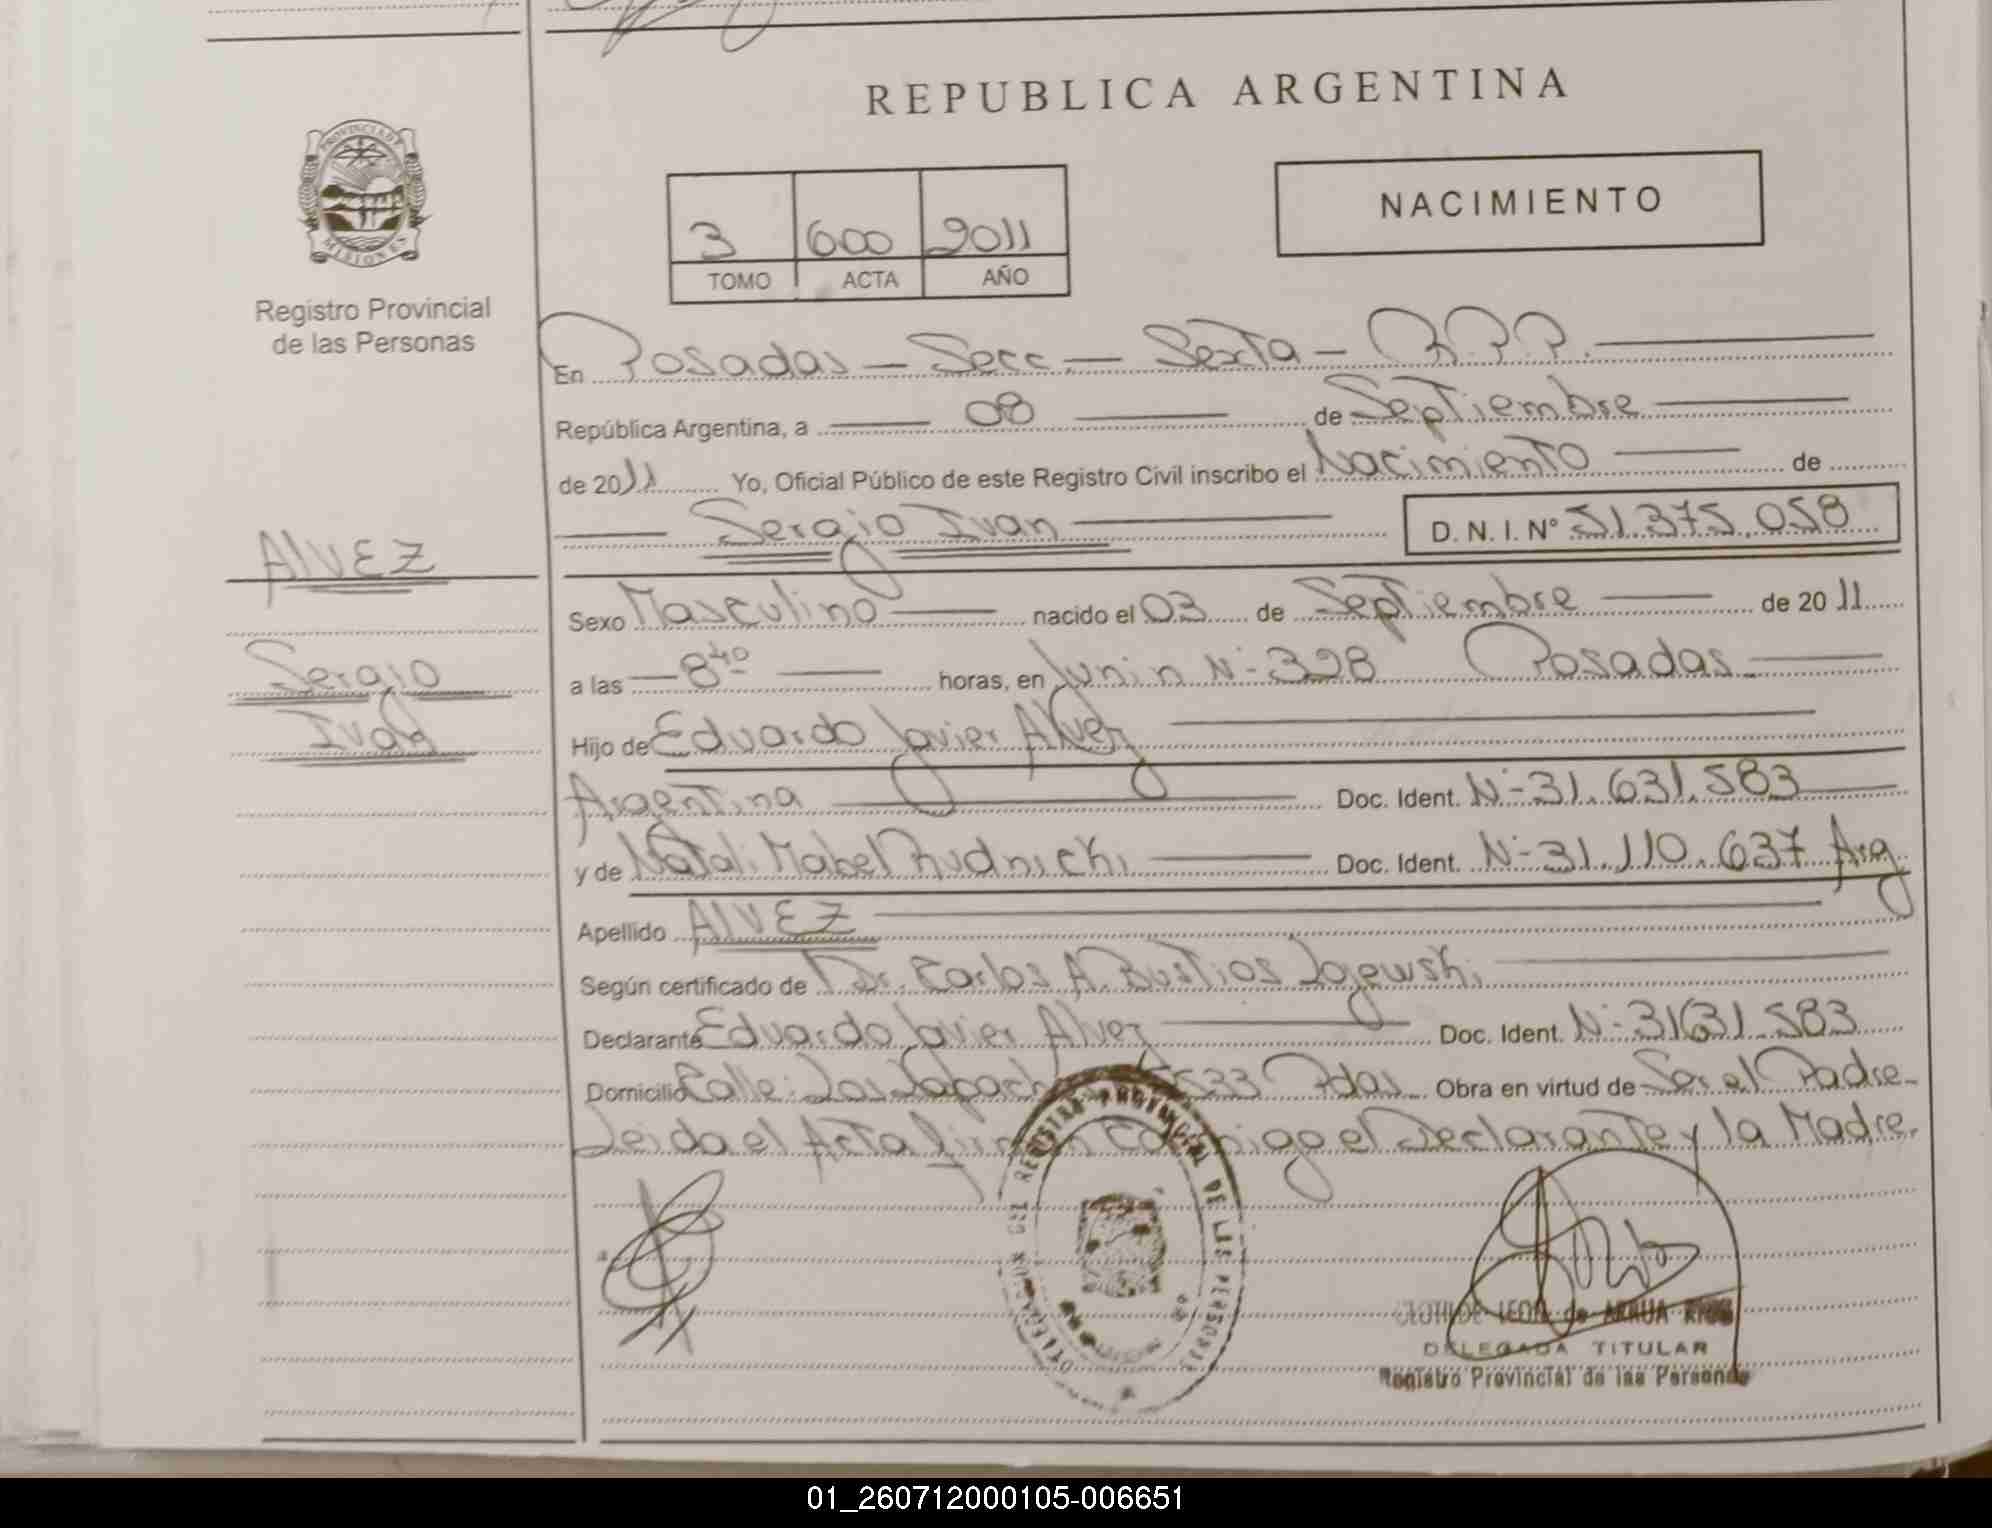 REPUBLICA ARGENTINA
PROVINCIA DE
MISIONES
Registro Provincial
de las Personas
3 600 2011
TOMO ACTA AÑO
NACIMIENTO
En Posadas - Secc. - Sexta - R.P.P.
República Argentina, a 08 de Septiembre
de 2011 Yo, Oficial Público de este Registro Civil inscribo el Nacimiento de
Sergio Ivan D. N. I. Nº 51.375.058
ALVEZ
Sergio
Ivan
Sexo Masculino nacido el 03 de Septiembre de 2011
a las 8 40 horas, en Junin Nº 328 Posadas
Hijo de Eduardo Javier Alvez
Argentina Doc. Ident. Nº 31.631.583
y de Natali Mabel Rudnicki Doc. Ident. Nº 31.110.637 Arg
Apellido ALVEZ
Según certificado de Dr. Carlos A. Bustios
Declarante Eduardo Javier Alvez Doc. Ident. Nº 31631.583
Domicilio Calle: Los 533 Pdas. Obra en virtud de Ser el Padre
Leida el Acta firman Conmigo el Declarante y la Madre.
REGISTRO PROVINCIAL DE LAS PERSONAS
CLOTILDE LEON de ARRUA
DELEGADA TITULAR
Registro Provincial de las Personas
01_260712000105-006651